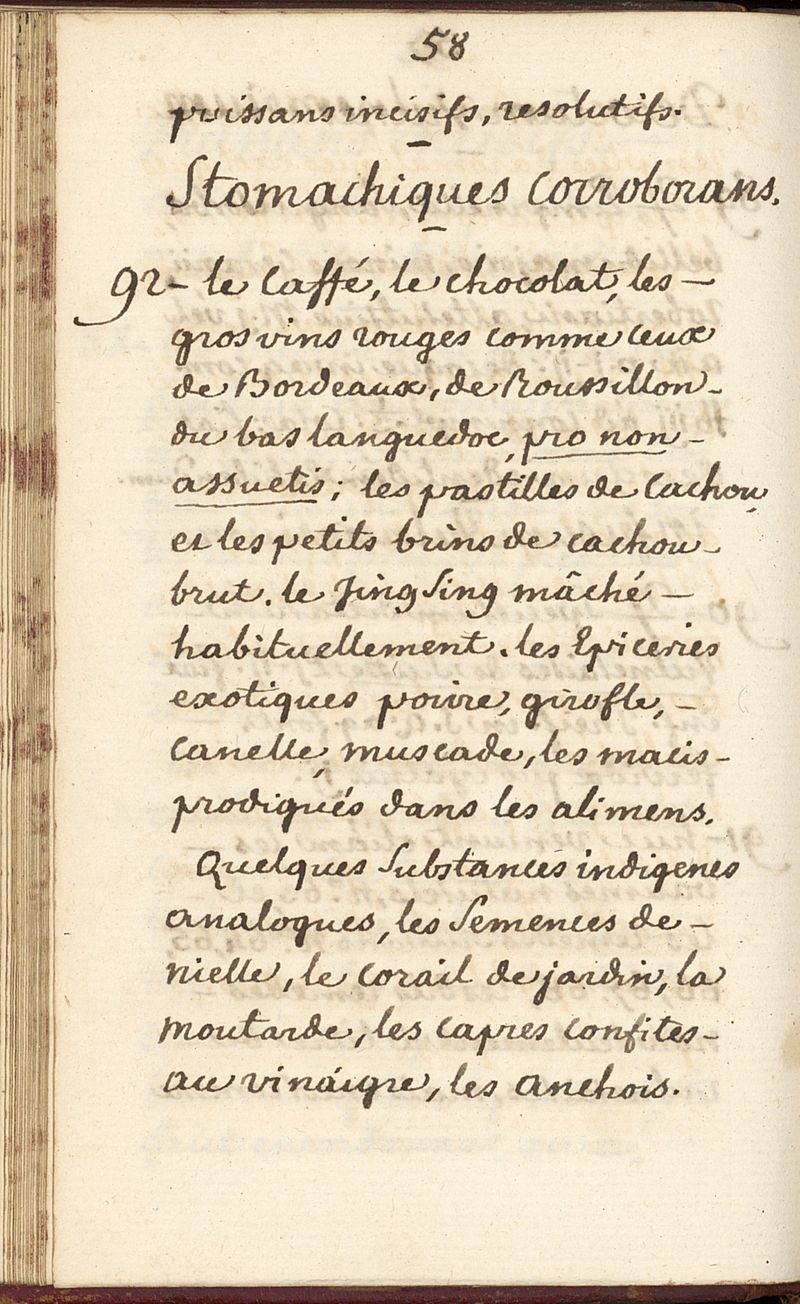 58
puissans incisifs, resolutifs.
Stomachiques corroborans.
92- le Caffé, le chocolat, les —
gros vins rouges comme ceux
de Bordeaux, de Roussillon -
du bas languedoc, pro non -
assuetis; les pastilles de Cachou,
et les petits brins de cachou -
brut. le Jing Sing mâché —
habituellement. les Epiceries
exotiques poivre, girofle, -
Canelle, muscade, les macis -
prodiqués dans les alimens.
Quelques Substances indigenes
analoques, les Semences de -
nielle, le corail de jardin, la
moutarde, les capres confites -
au vinaigre, les anchois.